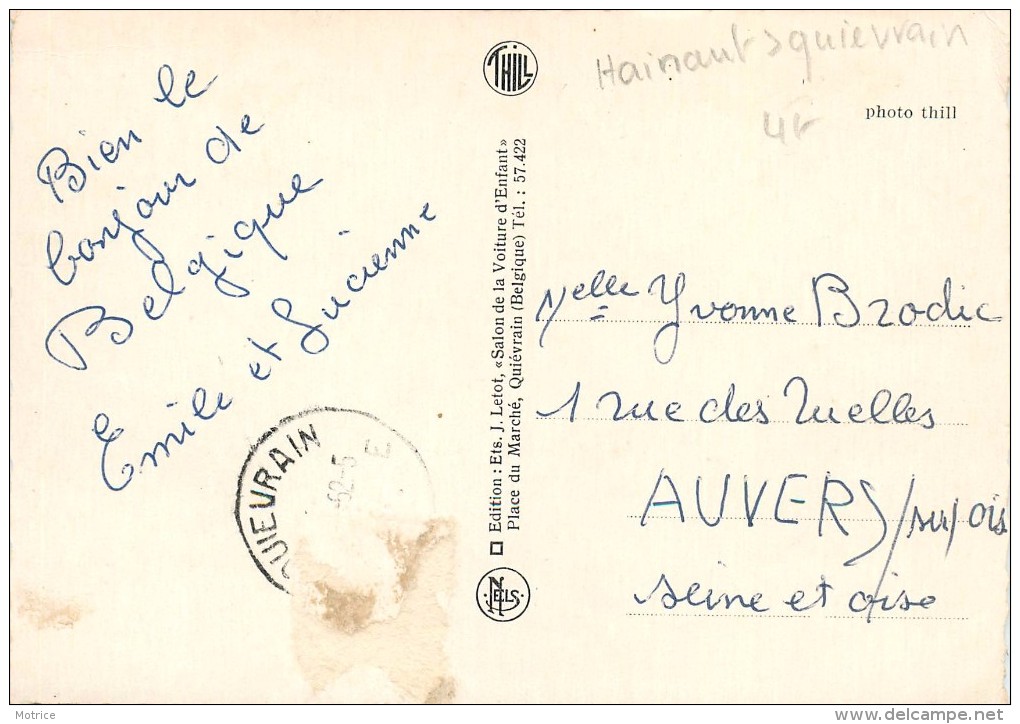 Bien le
bonjour de
Belgique
Emile et Lucienne
QUIEVRAIN
52-5
E
THILL
Edition : Ets. J. Letot, «Salon de la Voiture d'Enfant»
Place du Marché, Quiévrain (Belgique) Tél. : 57.422
NELS
Hainaut > quievrain
4F
photo thill
Melle Yvonne Brodic
1 rue des Ruelles
AUVERS/sur/ois
seine et oise
Motrice
www.delcampe.net